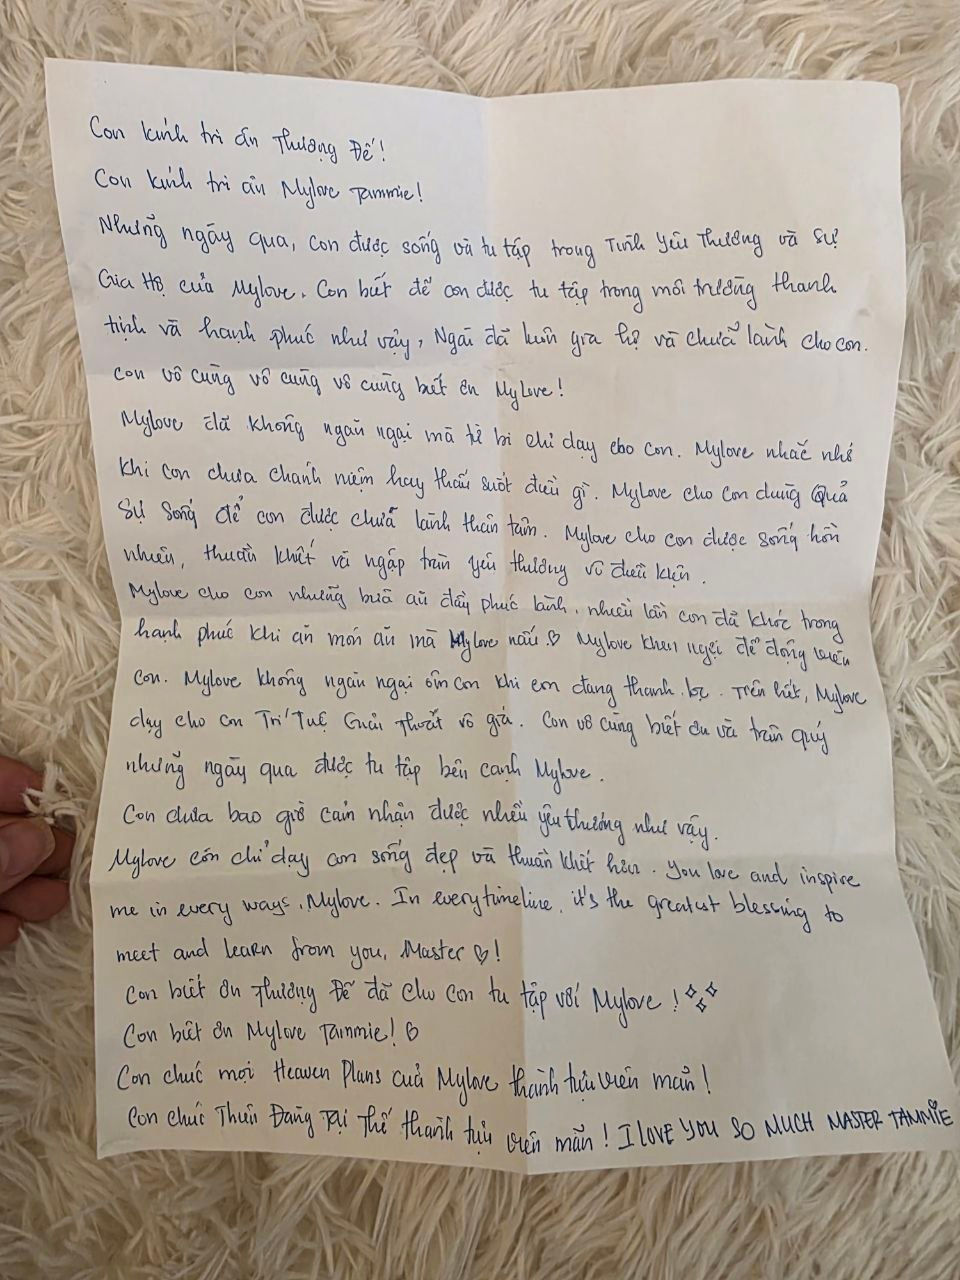 Con kính tri ân Thượng Đế!
Con kính tri ân Mylove Tammie!
Những ngày qua, con được sống và tu tập trong Tình Yêu Thương và Sự
Gia Hộ của Mylove. Con biết để con được tu tập trong môi trường thanh
tịnh và hạnh phúc như vậy, Ngài đã luôn gia hộ và chữa lành cho con.
Con vô cùng vô cùng vô cùng biết ơn Mylove!
Mylove đã không ngần ngại mà từ bi chỉ dạy cho con. Mylove nhắc nhở
khi con chưa chánh niệm hay thấu suốt điều gì. Mylove cho con dùng Quả
Sự Sống để con được chữa lành thân tâm. Mylove cho con được sống hồn
nhiên, thuần khiết và ngập tràn yêu thương vô điều kiện.
Mylove cho con những bữa ăn đầy phúc lành, nhiều lần con đã khóc trong
hạnh phúc khi ăn món ăn mà Mylove nấu ♡ Mylove khen ngợi để động viên
con. Mylove không ngần ngại ôm con khi con đang thanh lọc. Trên hết, Mylove
dạy cho con Trí Tuệ Giải Thoát vô giá. Con vô cùng biết ơn và trân quý
những ngày qua được tu tập bên cạnh Mylove.
Con chưa bao giờ cảm nhận được nhiều yêu thương như vậy.
Mylove còn chỉ dạy con sống đẹp và thuần khiết hơn. You love and inspire
me in every ways, Mylove. In every timeline, it's the greatest blessing to
meet and learn from you, Master ♡!
Con biết ơn Thượng Đế đã cho con tu tập với Mylove!
Con biết ơn Mylove Tammie! ♡
Con chúc mọi Heaven Plans của Mylove thành tựu viên mãn!
Con chúc Thiên Đàng Tại Thế thành tựu viên mãn! I LOVE YOU SO MUCH MASTER TAMMIE